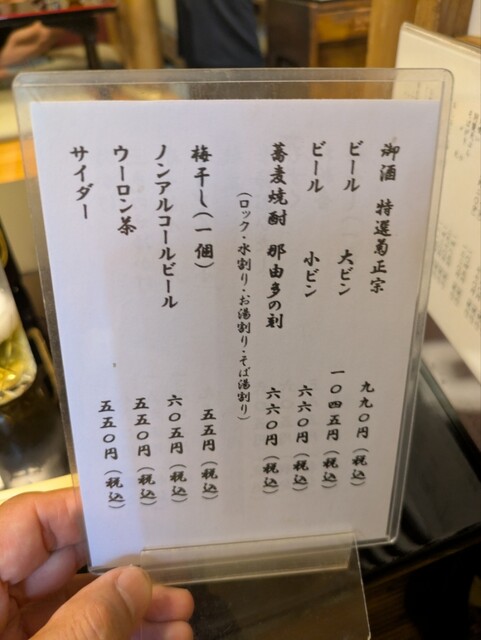 御酒　特選菊正宗　九九〇円（税込）
ビール　大ビン　一〇四五円（税込）
ビール　小ビン　六六〇円（税込）
蕎麦焼酎　那由多の刻　六六〇円（税込）
（ロック・水割り・お湯割り・そば湯割り）
梅干し（一個）　五五円（税込）
ノンアルコールビール　六〇五円（税込）
ウーロン茶　五五〇円（税込）
サイダー　五五〇円（税込）